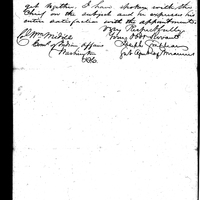 get together. I have spoken with the
Chief on the subject and he expresses his
entire satisfaction with the appointment.
Very Respectfully
Your Obt Servant
Com. of Indian Affairs
Joseph
Washington